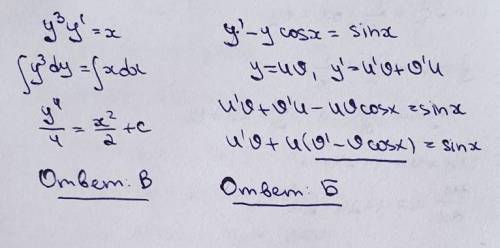 y³y' = x
∫y³dy = ∫xdx
y⁴/4 = x²/2 + c
Ответ: В
y' - y cosx = sinx
y = uv, y' = u'v + v'u
u'v + v'u - uv cosx = sinx
u'v + u(v' - v cosx) = sinx
Ответ: Б